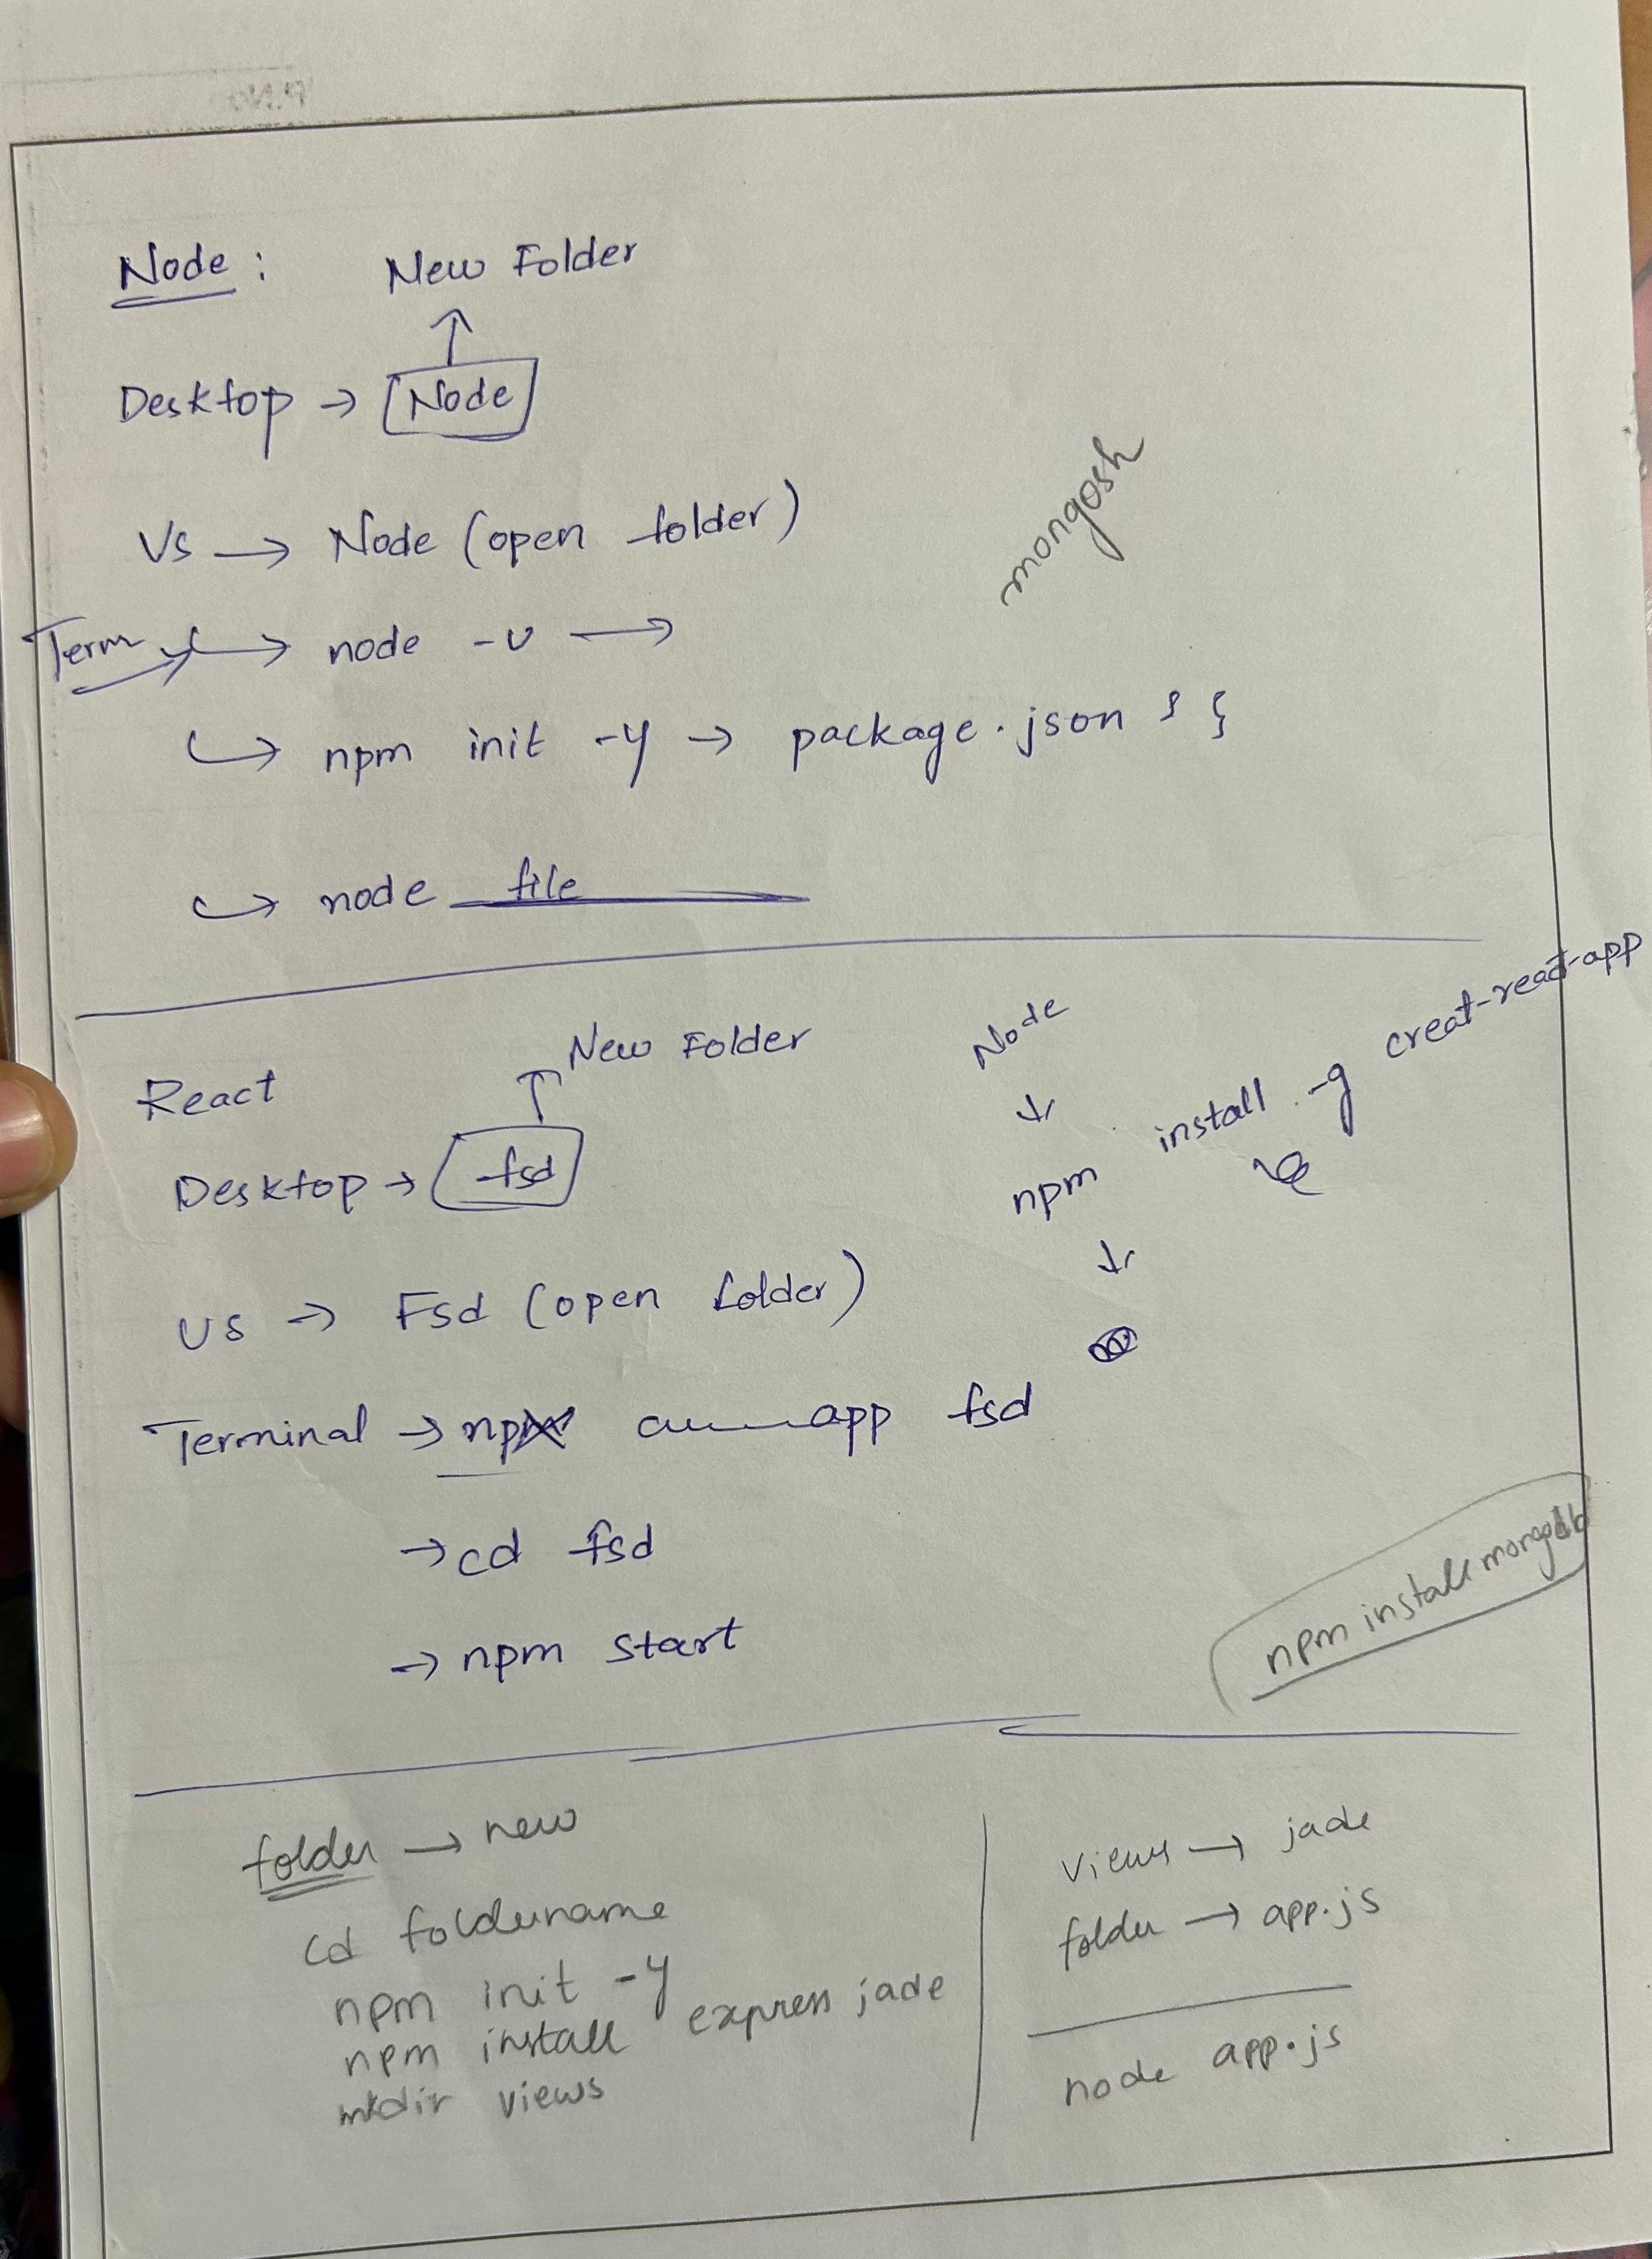 Node : New Folder
↑
Desktop → Node
Vs → Node (open folder)
mongosh
Term → node -v →
↪ npm init -y → package.json
↪ node file
React
New Folder
↑
Desktop → fsd
VS → Fsd (open folder)
Terminal → npx app fsd
→ cd fsd
→ npm start
Node
↓
npm install -g creat-react-app
↓
npm install mongodb
folder → new
cd foldername
npm init -y
npm install express jade
mkdir views
views → jade
folder → app.js
node app.js